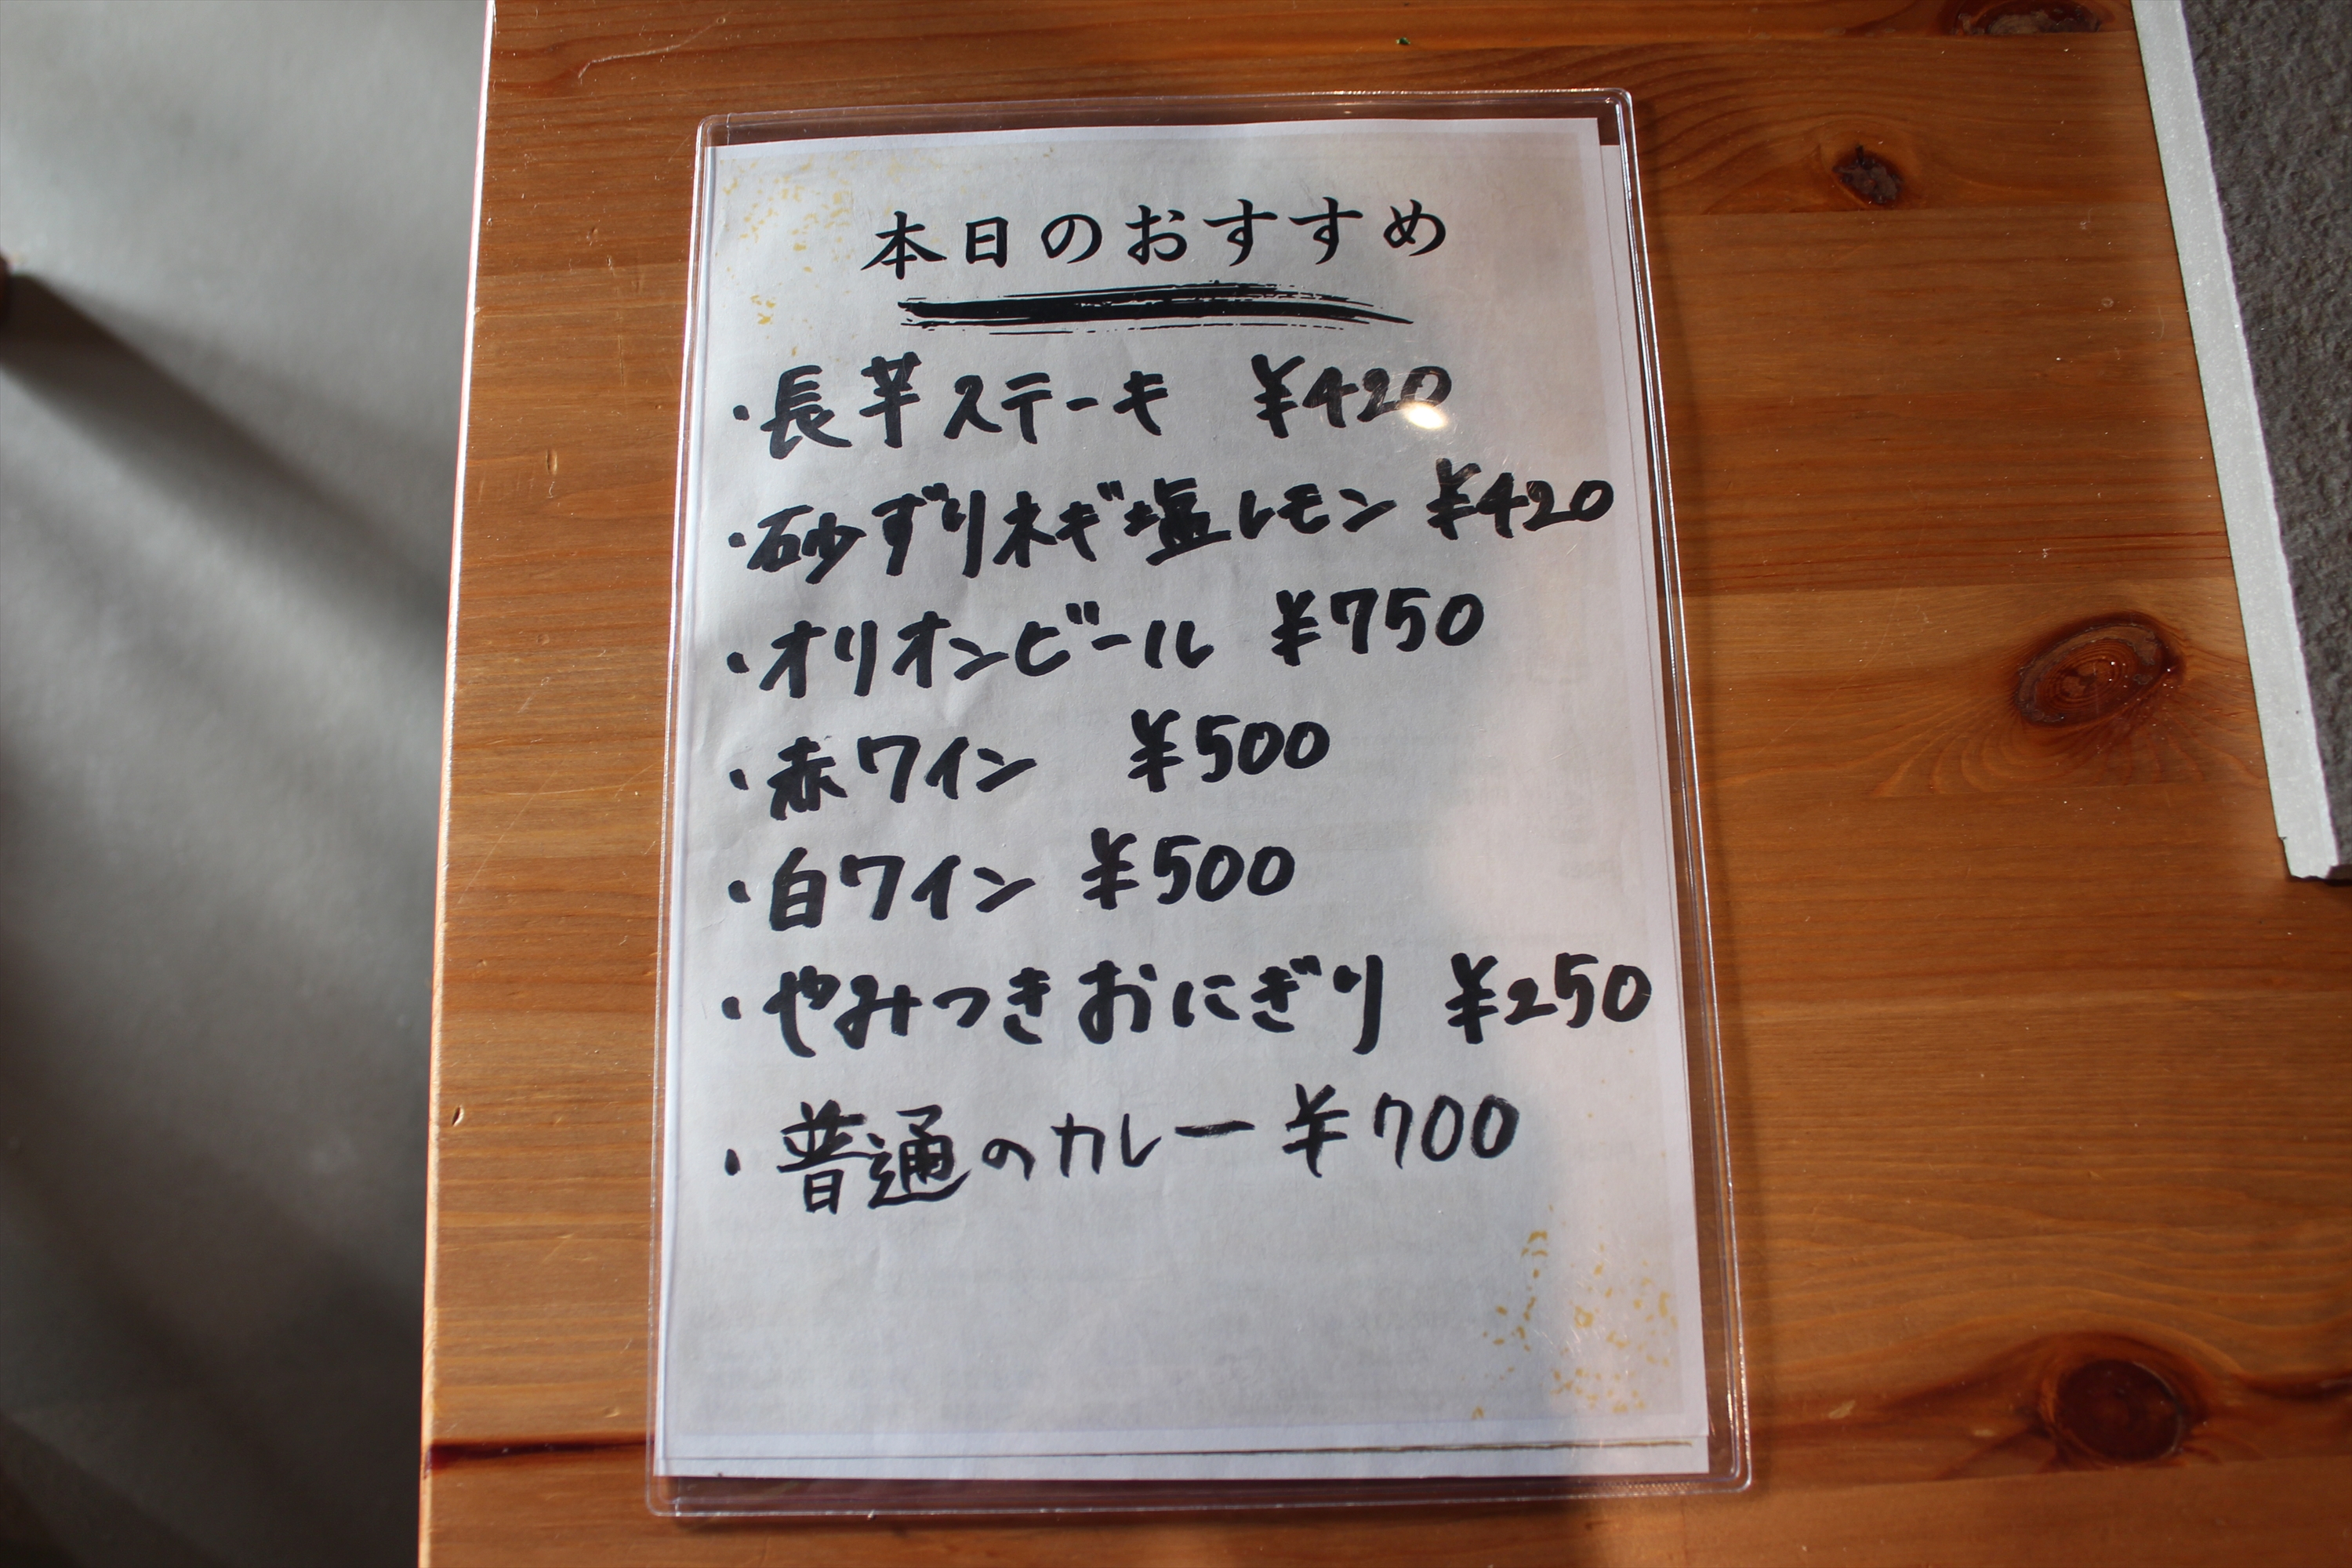 本日のおすすめ
・長芋ステーキ ¥420
・砂ずりネギ塩レモン ¥420
・オリオンビール ¥750
・赤ワイン ¥500
・白ワイン ¥500
・やみつきおにぎり ¥250
・普通のカレー ¥700